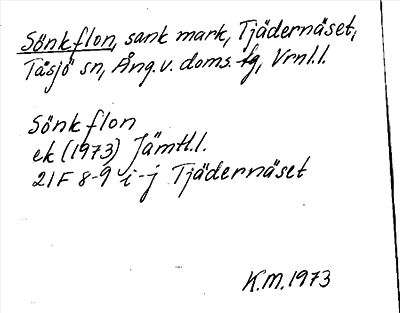 Sönkflon, sank mark, Tjädernäset,
Tåsjö sn, Ång. v. doms. fg, Vrnl.l.
Sönkflon
ek (1973) Jämtl.l.
21F 8-9 i-j Tjädernäset
K.M. 1973